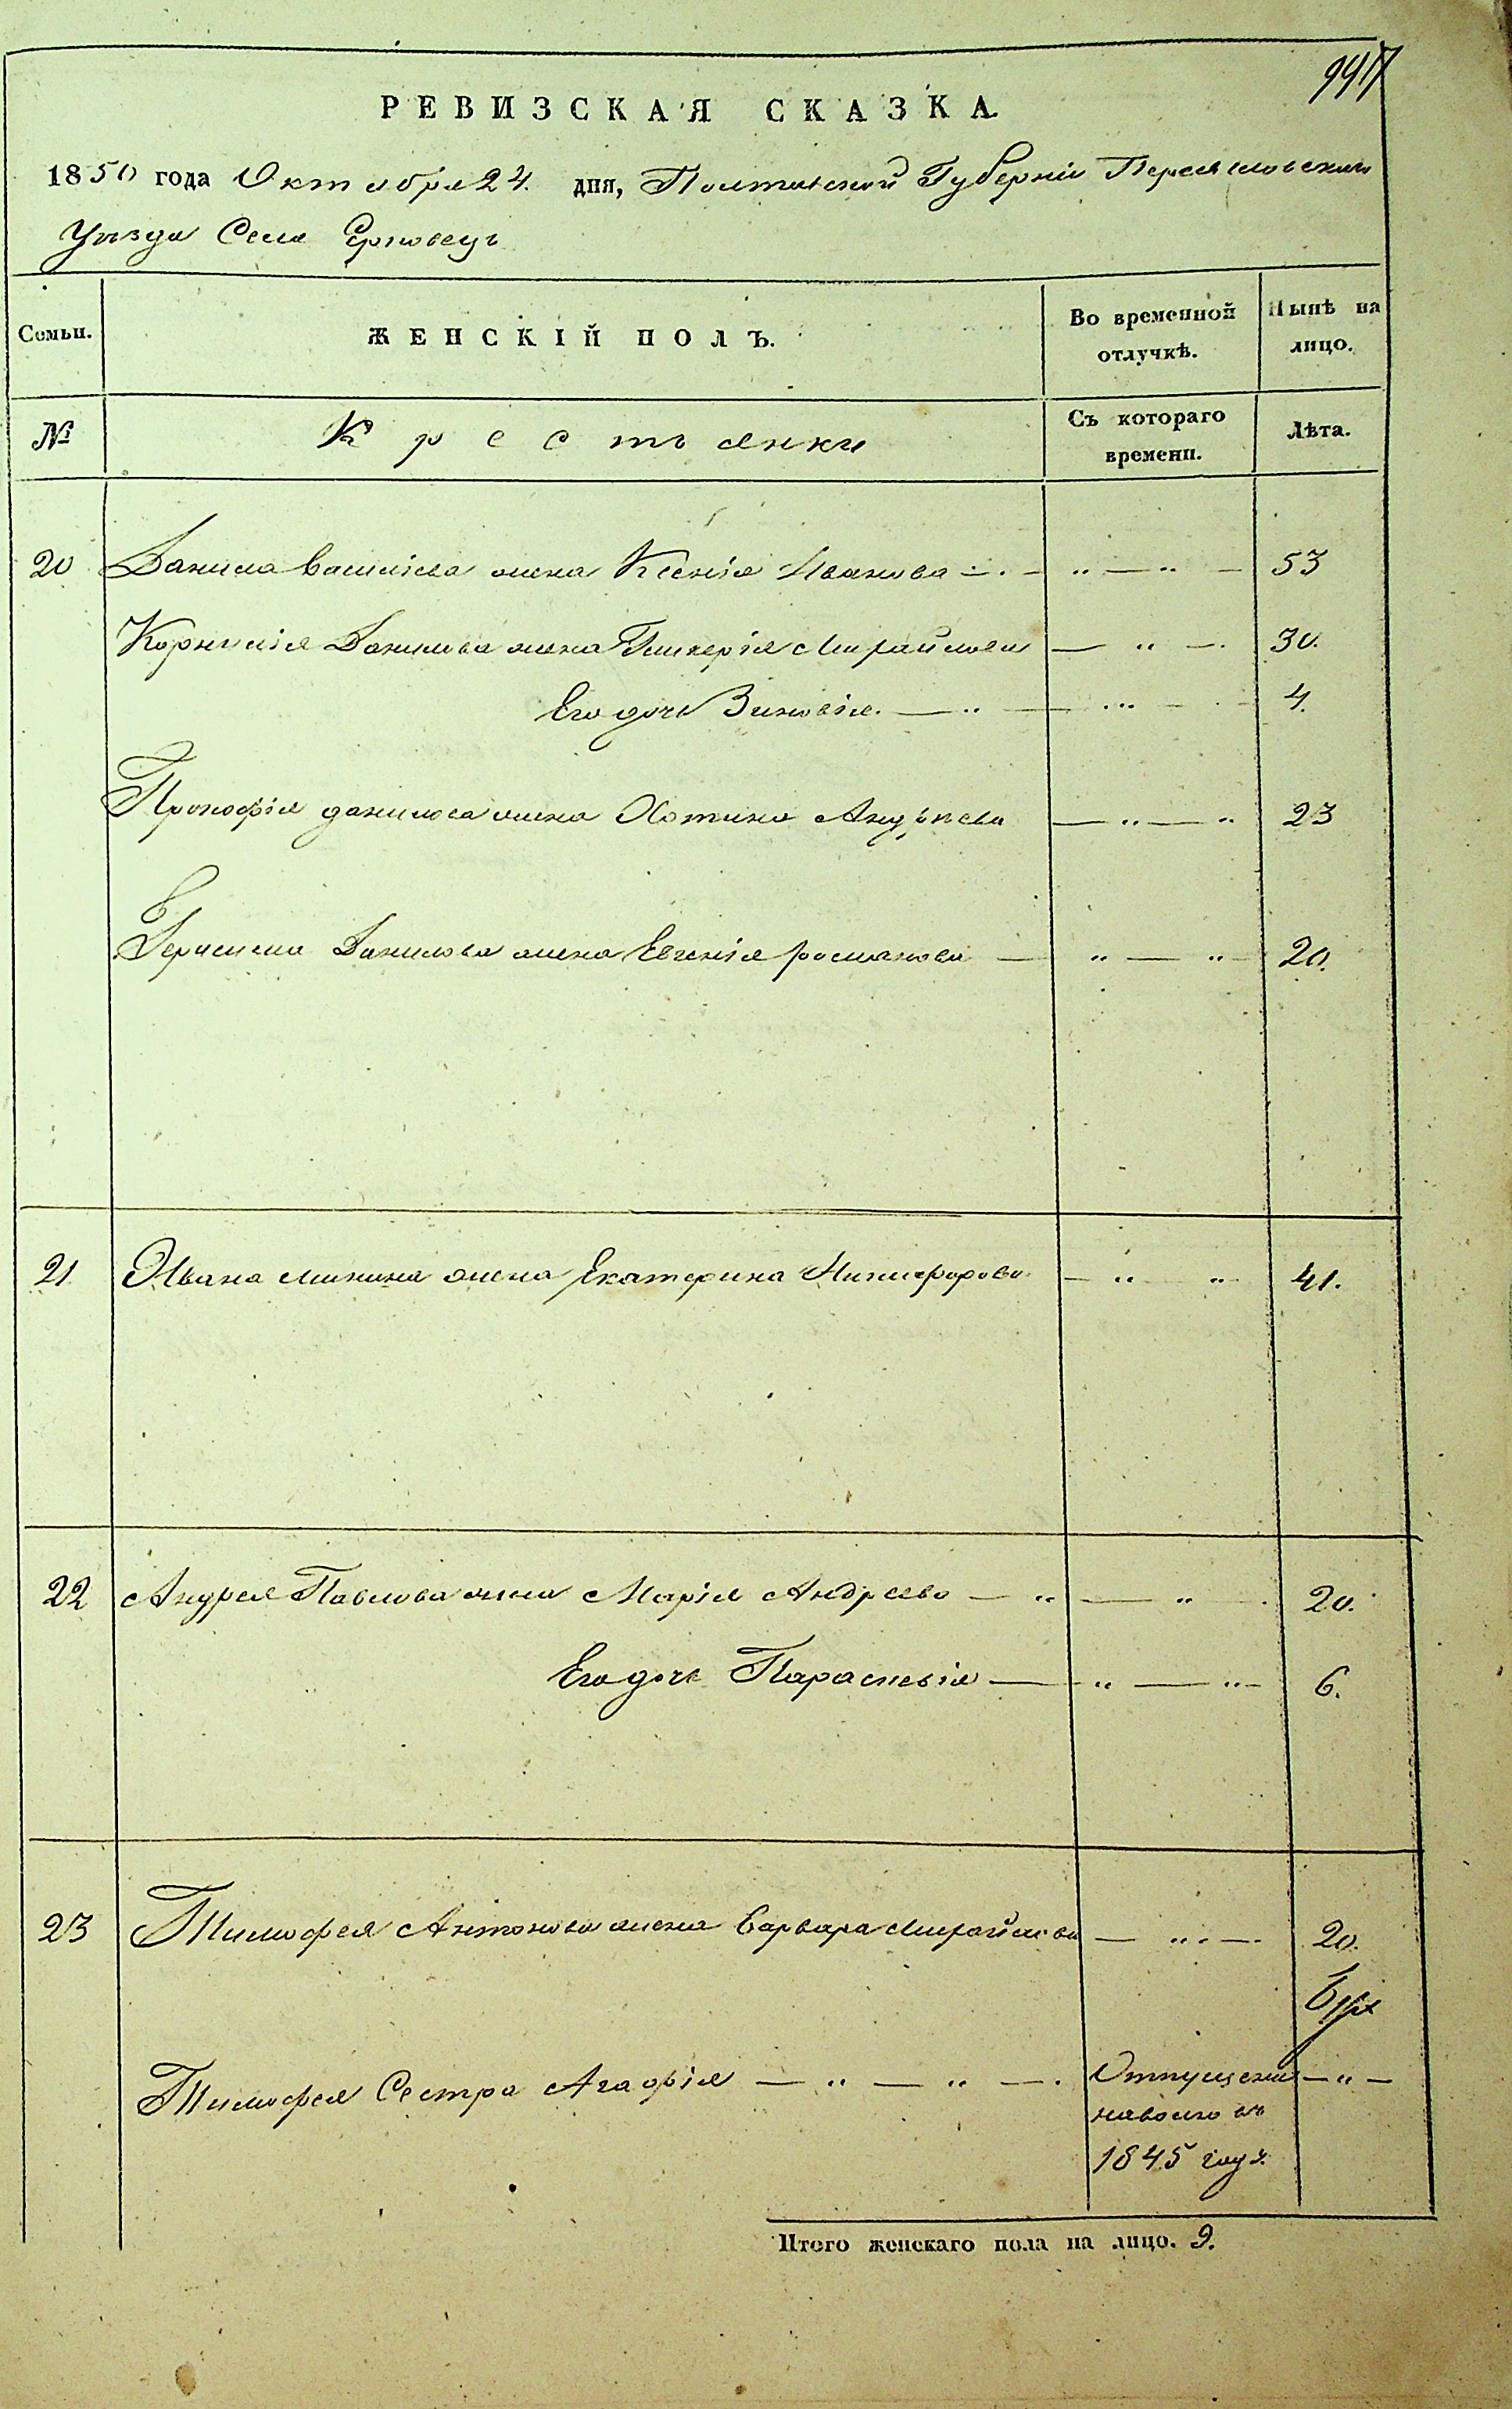 РЕВИЗСКАЯ СКАЗКА.
1850 года Октября 24. дня, Полтавской Губерніи Переяславскаго
Уѣзда Села Ерковецъ
Семьи. ЖЕНСКІЙ ПОЛЪ. Во временной отлучкѣ. Нынѣ на лицо.
№ Крестьянки Съ котораго времени. Лѣта.
20 Данила Василіева жена Ксенія Иванова — 53
Корнилія Данилова жена Гликерія Михайлова — 30.
Его дочь Зиновія. — 4.
Прокофія данилова жена Хотина Андрѣева — 23
Герасима Данилова жена Евгенія романова — 20.
21 Ивана Минина жена Екатерина Никифорова — 41.
22 Андрея Павлова жена Марія Андреева — 20.
Его дочь Параскевія — 6.
23 Тимофея Антонова жена Варвара Михайлова — 20.
Тимофея Сестра Агафія — Отпущена —
наволю въ
1845 году.
Итого женскаго пола на лицо. 9.